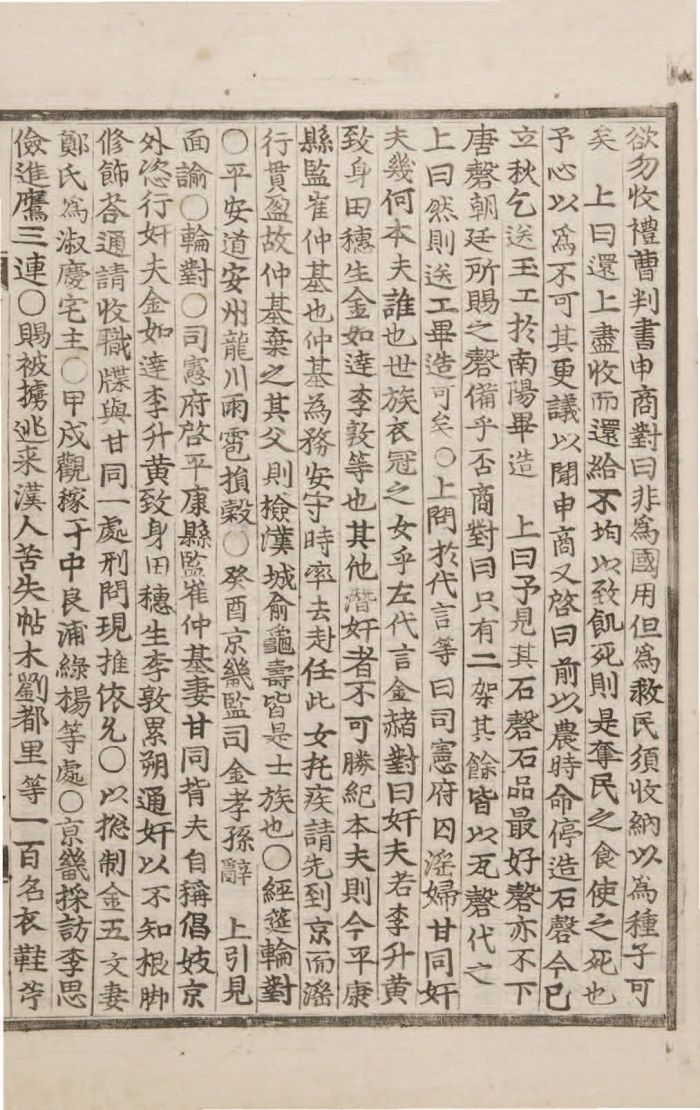 欲勿收禮曹判書申商對曰非爲國用但爲救民須收納以爲種子可
矣　上曰還上盡收而還給不均以致飢死則是奪民之食使之死也
予心以爲不可其更議以聞申商又啓曰前以農時命停造石磬今已
立秋乞送玉工於南陽畢造　上曰予見其石磬石品最好磬亦不下
唐磬朝廷所賜之磬備乎否商對曰只有二架其餘皆以瓦磬代之
上曰然則送工畢造可矣○上問於代言等曰司憲府囚滛婦甘同奸
夫幾何本夫誰也世族衣冠之女乎左代言金赭對曰奸夫若李升黄
致身田穗生金如達李敦等也其他潛奸者不可勝紀本夫則今平康
縣監崔仲基也仲基為務安守時率去赴任此女托疾請先到京而滛
行貫盈故仲基棄之其父則檢漢城俞龜壽皆是士族也○經筵輪對
○平安道安州龍川雨雹損穀○癸酉京畿監司金孝孫辭　上引見
面諭○輪對○司憲府啓平康縣監崔仲基妻甘同背夫自稱倡妓京
外恣行奸夫金如達李升黄致身田穗生李敦累朔通奸以不知根脚
修飾荅通請收職牒與甘同一處刑問現推依允○以揔制金五文妻
鄭氏爲淑慶宅主○甲戌觀稼于中良浦綠楊等處○京畿採訪李思
儉進鷹三連○賜被擄逃来漢人苦失帖木劉都里等一百名衣鞋笠